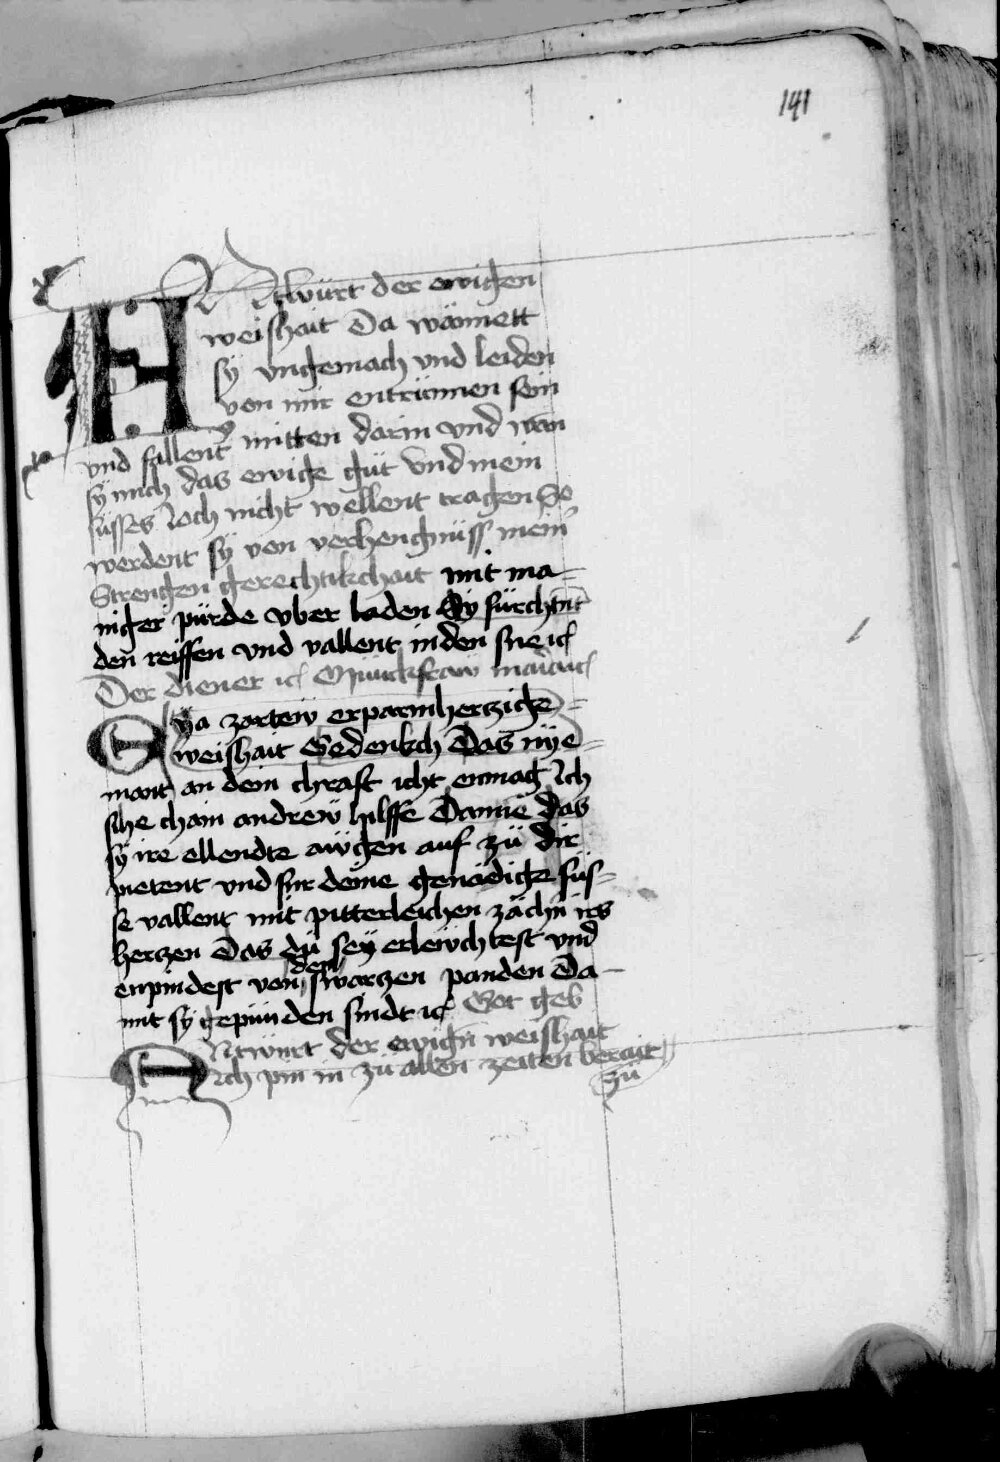 141
Antwürt der ewigen
weishait Da wännett
sÿ vngemach vnd leiden
von mir entrünnen sein
vnd fallent mitten darin vnd wan
sÿ mich das ewige güt vnd mein
süsses Joch nicht wellent tragen So
werdent sÿ von verhengnüss mein
Strengen gerechtikchait mit ma=
niger pürde vber laden Sÿ fürchtnt
den reiffen vnd vallent in den sne ic
Der diener ic
Eÿa zartew erparmherczige=
weishait Gedenkch Das nÿe=
mant an dein chraft icht enmag Ich
sihe chain andrew hilffe Danne das
sÿ ire ellendte awgen auf zü dir
pietent vnd für deine genädige süs=
se vallent mit pitterleichen zächn irs
herczen Das dü seÿ erlewchtest vnd
enpindest von den swarczen panden Da-
mit sÿ gepünden sindt ic Got geb
Antwürt der ewign weishait
Ich pin in zü allen zeiten berait
zü